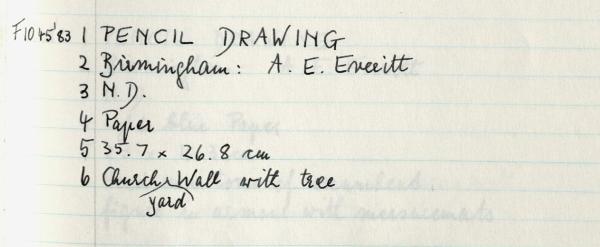 F1045'83 1 PENCIL DRAWING
2 Birmingham: A. E. Everitt
3 N.D.
4 Paper
5 35.7 x 26.8 cm
6 Church Wall with tree
yard